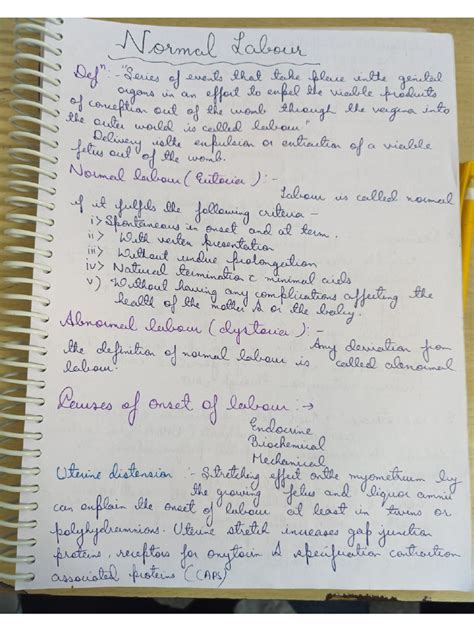 Normal Labour
Defn :- "Series of events that take place in the genital
organs in an effort to expel the viable products
of conception out of the womb through the vagina into
the outer world is called labour"
Delivery is the expulsion or extraction of a viable
fetus out of the womb.
Normal labour (Eutocia) :-
Labour is called normal
if it fulfils the following criteria -
i> Spontaneous in onset and at term.
ii> With vertex presentation
iii> Without undue prolongation
iv> Natural termination c minimal aids
v) Without having any complications affecting the
health of the mother & or the baby.
Abnormal labour (dystocia) :-
Any deviation from
the definition of normal labour is called abnormal
labour.
Causes of onset of labour :→
Endocrine
Biochemical
Mechanical
Uterine distension :- Stretching effect on the myometrium by
the growing fetus and liquor amnii
can explain the onset of labour at least in twins or
polyhydramnios. Uterine stretch increases gap junction
proteins, receptors for oxytocin & specification contraction
associated proteins (CAPs)